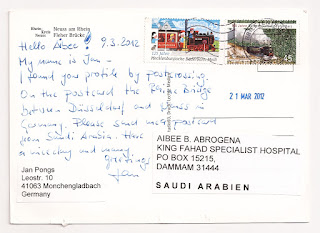 Rhein
Kreis
Neuss
Neuss am Rhein
Fleher Brücke
Hello Aibee! 9.3.2012
My name is Jan –
I found you profile by postcrossing.
On the postcard the Rhine Bridge
between Düsseldorf and Neuss in
Germany. Please send me a postcard
from Saudi Arabia. Have
a nice day and many
greetings
Jan
Jan Pongs
Leostr. 10
41063 Monchengladbach
Germany
125 Jahre
Mecklenburgische Bäderbahn Molli
45
21 MAR 2012
AIBEE B. ABROGENA
KING FAHAD SPECIALIST HOSPITAL
PO BOX 15215,
DAMMAM 31444
SAUDI ARABIEN